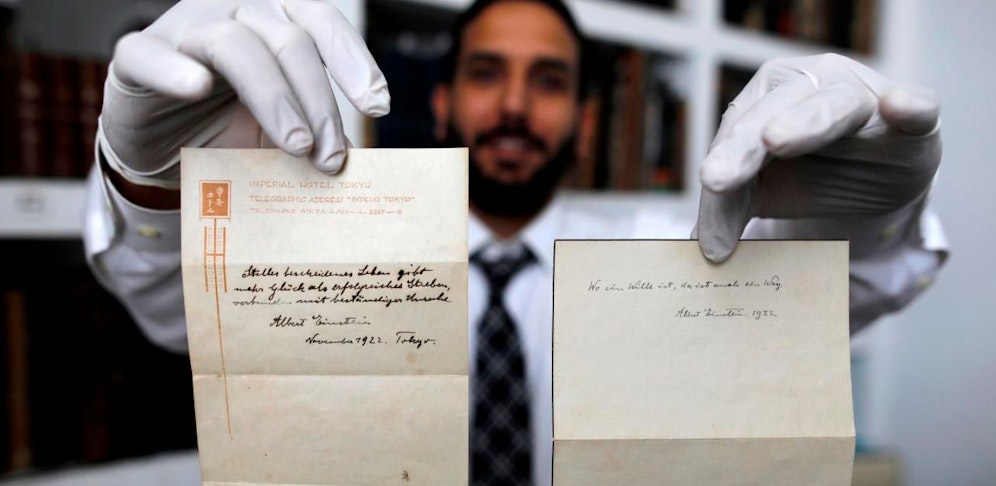 帝国ホテル
IMPERIAL HOTEL TOKYO
TELEGRAPHIC ADDRESS "IMPEHO TOKYO"
Stilles bescheidenes Leben gibt
mehr Glück als erfolgreiches Streben,
verbunden mit beständiger Unruhe
Albert Einstein
November 1922. Tokyo.
Wo ein Wille ist, da ist auch ein Weg.
Albert Einstein. 1922